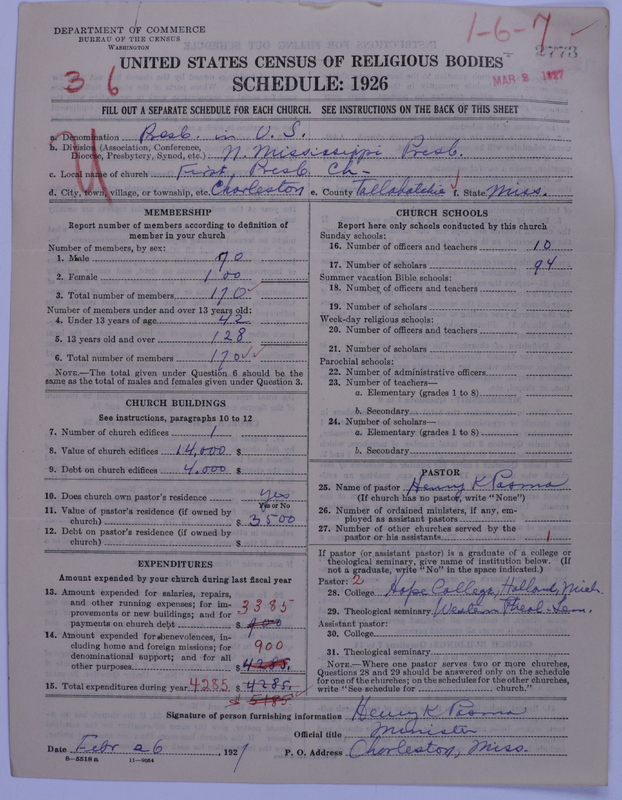 DEPARTMENT OF COMMERCE
BUREAU OF THE CENSUS
WASHINGTON
1-6-7
277B
MAR 2 1927
36
UNITED STATES CENSUS OF RELIGIOUS BODIES
SCHEDULE: 1926
FILL OUT A SEPARATE SCHEDULE FOR EACH CHURCH. SEE INSTRUCTIONS ON THE BACK OF THIS SHEET
a. Denomination Presb. in U.S.
b. Division (Association, Conference, Diocese, Presbytery, Synod, etc.) N. Mississippi Presb.
c. Local name of church First Presb. Ch-
d. City, town, village, or township, etc. Charleston e. County Tallahatchie f. State Miss.
MEMBERSHIP
Report number of members according to definition of
member in your church
Number of members, by sex:
1. Male 70
2. Female 100
3. Total number of members 170
Number of members under and over 13 years old:
4. Under 13 years of age 42
5. 13 years old and over 128
6. Total number of members 170
NOTE.—The total given under Question 6 should be
same as the total of males and females given under Question 3.
CHURCH BUILDINGS
See instructions, paragraphs 10 to 12
7. Number of church edifices 1
8. Value of church edifices 14,000 $
9. Debt on church edifices 4.000 $
10. Does church own pastor's residence yes
Yes or No
11. Value of pastor's residence (if owned by
church) $ 3500
12. Debt on pastor's residence (if owned by
church) $
EXPENDITURES
Amount expended by your church during last fiscal year
13. Amount expended for salaries, repairs,
and other running expenses; for im-
provements or new buildings; and for
payments on church debt 3385 $ 900
14. Amount expended for benevolences, in-
cluding home and foreign missions; for
denominational support; and for all
other purposes 900 $ 4285.
15. Total expenditures during year 4285 $ 4285.
$ 5185
CHURCH SCHOOLS
Report here only schools conducted by this church
Sunday schools:
16. Number of officers and teachers 10
17. Number of scholars 94
Summer vacation Bible schools:
18. Number of officers and teachers
19. Number of scholars
Week-day religious schools:
20. Number of officers and teachers
21. Number of scholars
Parochial schools:
22. Number of administrative officers
23. Number of teachers—
a. Elementary (grades 1 to 8)
b. Secondary
24. Number of scholars—
a. Elementary (grades 1 to 8)
b. Secondary
PASTOR
25. Name of pastor Henry K Pasma
(If church has no pastor, write "None")
26. Number of ordained ministers, if any, em-
ployed as assistant pastors
27. Number of other churches served by the
pastor or his assistants 1
If pastor (or assistant pastor) is a graduate of a college or
theological seminary, give name of institution below. (If
not a graduate, write "No" in the space indicated.)
Pastor: 2
28. College Hope College, Holland, Mich.
29. Theological seminary Western Theol-Sem.
Assistant pastor:
30. College
31. Theological seminary
NOTE.—Where one pastor serves two or more churches,
Questions 28 and 29 should be answered only on the schedule
for one of the churches; on the schedules for the other churches,
write "See schedule for church."
Signature of person furnishing information Henry K Pasma
Official title Minister
Date Febr 26, 1927 P. O. Address Charleston, Miss.
8-5518a 11-9054